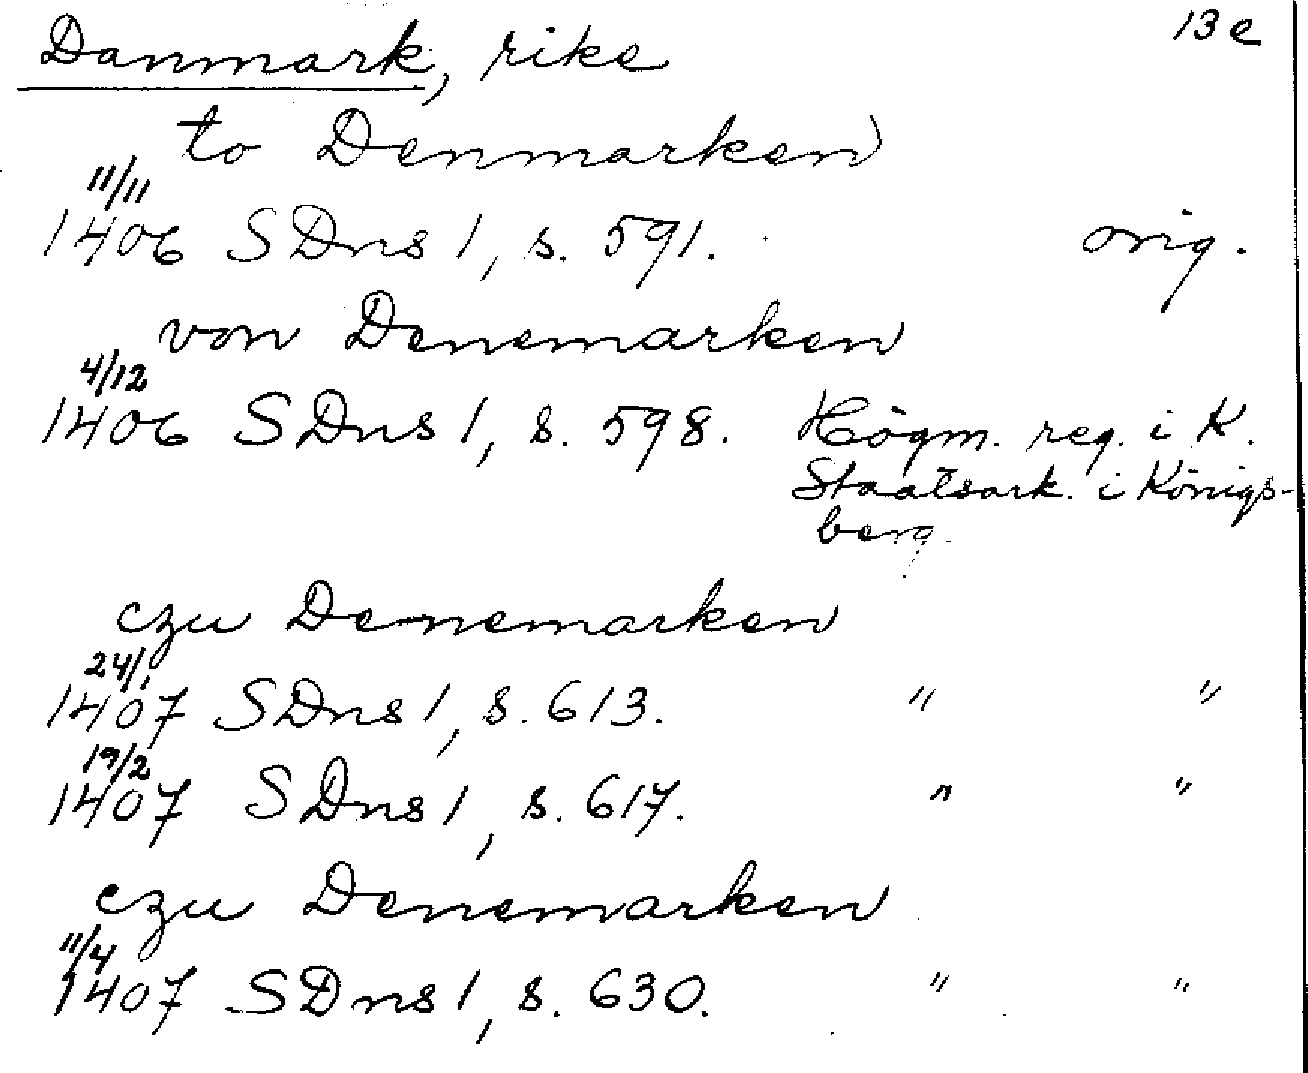 13 e
Danmark, rike
to Denmarken
11/11
1406 SDns 1, s. 591. orig.
von Denemarken
4/12
1406 SDns 1, s. 598. Högm. reg. i K.
Staatsark. i Königs-
berg.
czu Denemarken
24/1
1407 SDns 1, s. 613. " "
19/2
1407 SDns 1, s. 617. " "
czu Denemarken
11/4
1407 SDns 1, s. 630. " "